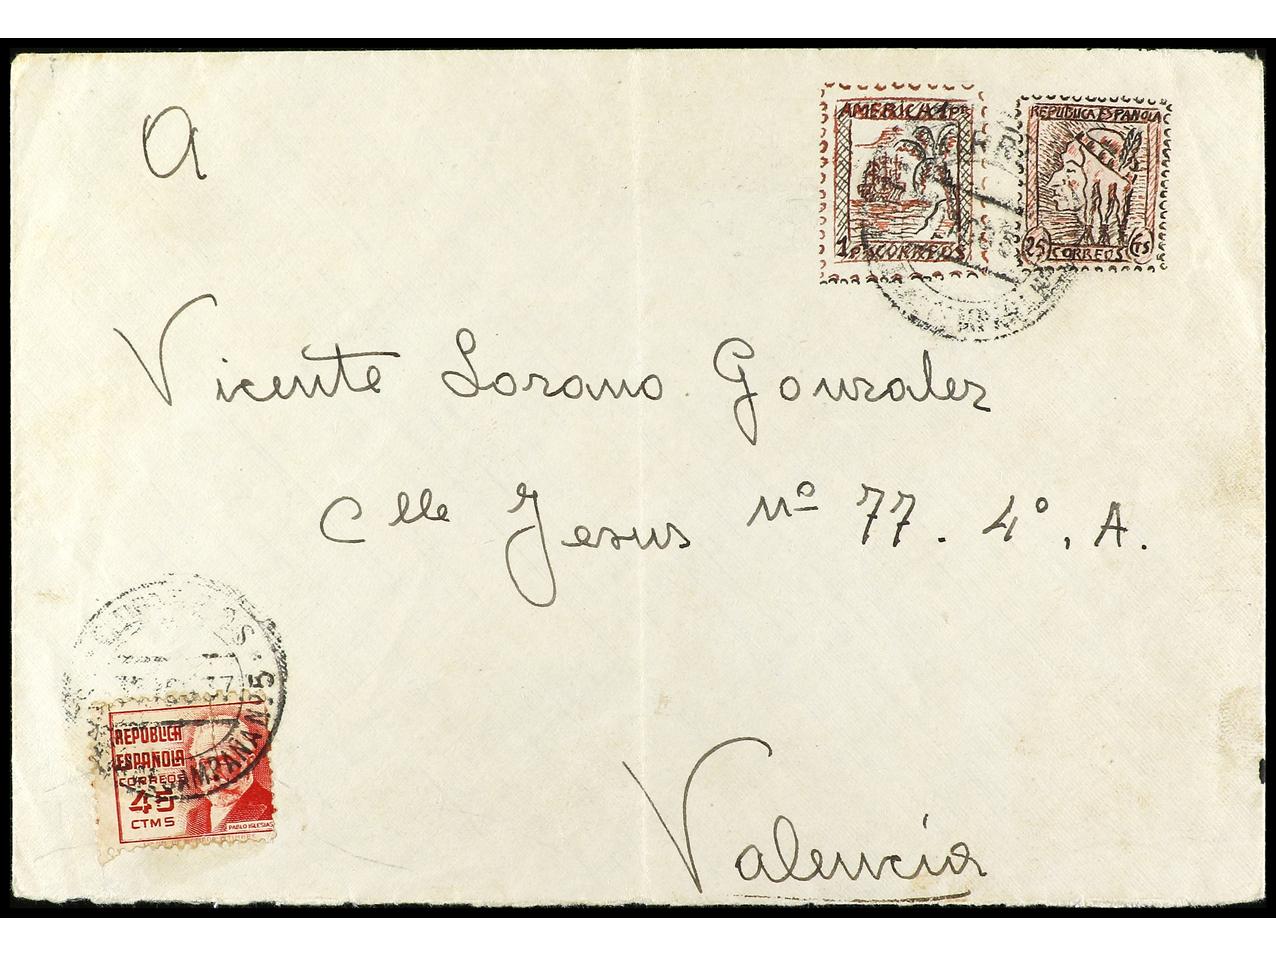 A
AMERICA 1 PTS
1 PTS CORREOS
REPUBLICA ESPAÑOLA
25 CORREOS CTS
Vicente Lorano Gonzalez
Clle Jesus nº 77. 4º, A.
37
CAMPAÑA Nº5
REPÚBLICA
ESPAÑOLA
CORREOS
45
CTMS
PABLO IGLESIAS
Valencia